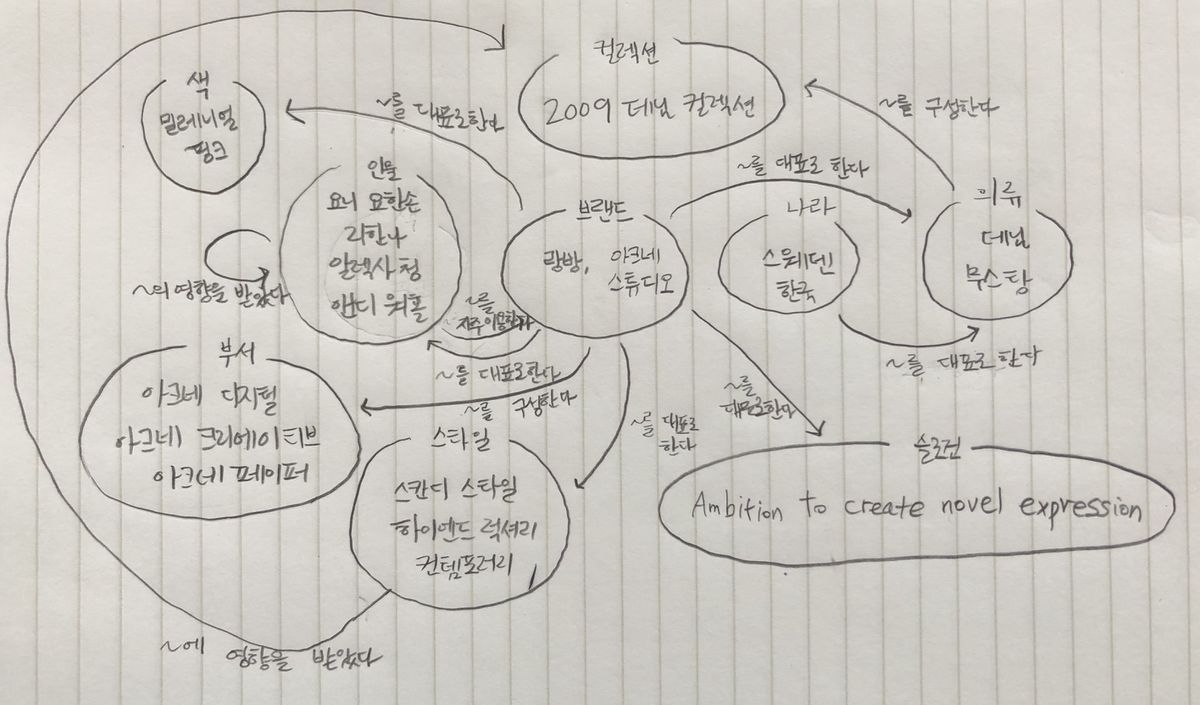 컬렉션
2009 데님 컬렉션
색
밀레니얼
핑크
~를 대표로한다
~를 구성한다
인물
요니 요한손
리한나
알렉사 청
앤디 워홀
~의 영향을 받았다
브랜드
랑방, 아크네
스튜디오
~를 대표로 한다
나라
스웨덴
한국
의류
데님
무스탕
~를
자주이용한다
~를 대표로한다
~를 구성한다
~를 대표로 한다
부서
아크네 디지털
아크네 크리에이티브
아크네 페이퍼
스타일
스칸디 스타일
하이엔드 럭셔리
컨템포러리
~를 대표로
한다
~를
대표로한다
슬로건
Ambition to create novel expression
~에 영향을 받았다